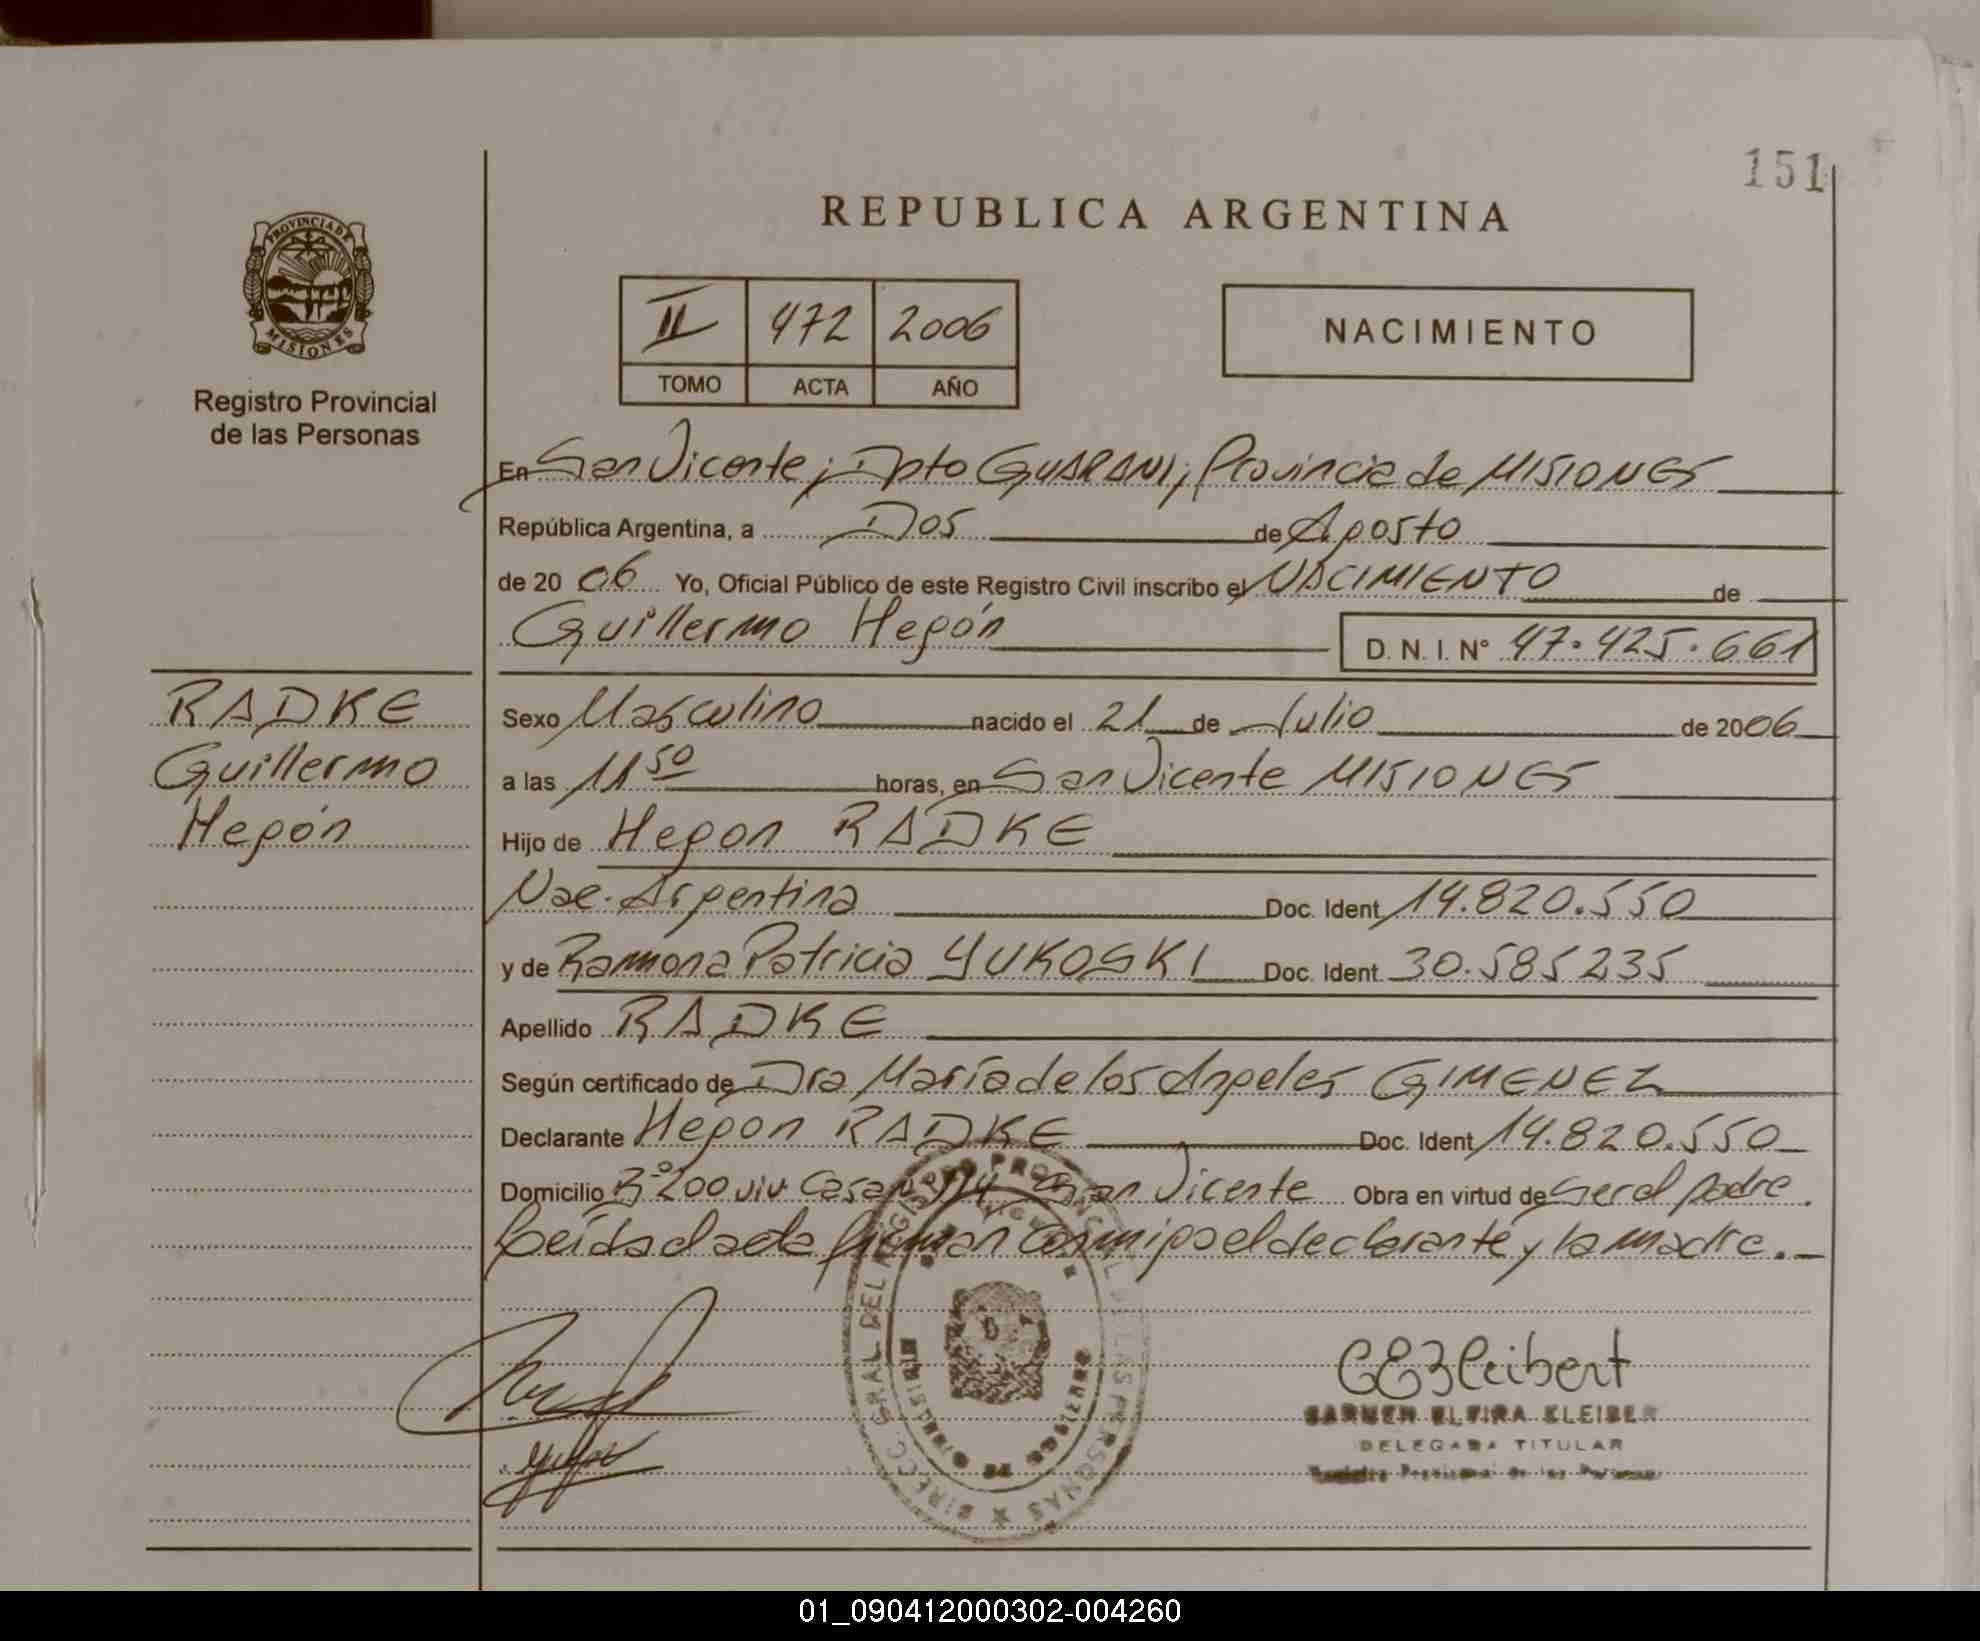 151
PROVINCIA DE
MISIONES
Registro Provincial
de las Personas
REPUBLICA ARGENTINA
II 472 2006
TOMO ACTA AÑO
NACIMIENTO
En San Vicente; Dpto GUARANI; Provincia de MISIONES
República Argentina, a Dos de Agosto
de 2006 Yo, Oficial Público de este Registro Civil inscribo el NACIMIENTO de
Guillermo Hegón D.N.I. Nº 47.425.661
RADKE
Guillermo
Hegón
Sexo Masculino nacido el 21 de Julio de 2006
a las 11 50 horas, en San Vicente MISIONES
Hijo de Hegon RADKE
Nac. Argentina Doc. Ident 14.820.550
y de Ramona Patricia YUKOSKI Doc. Ident. 30.585235
Apellido RADKE
Según certificado de Dra María de los Angeles GIMENEZ
Declarante Hegón RADKE Doc. Ident 14.820.550
Domicilio Bº 200 viv. Casa San Vicente Obra en virtud de Ser el padre.
Leída el acta firman conmigo el declarante y la madre.
DIRECC. GRAL DEL REGISTRO PROVINCIAL DE LAS PERSONAS
MINISTERIO DE GOBIERNO
CEKleibert
CARMEN ELVIRA KLEIBER
DELEGADA TITULAR
Registro Provincial de las Personas
01_090412000302-004260